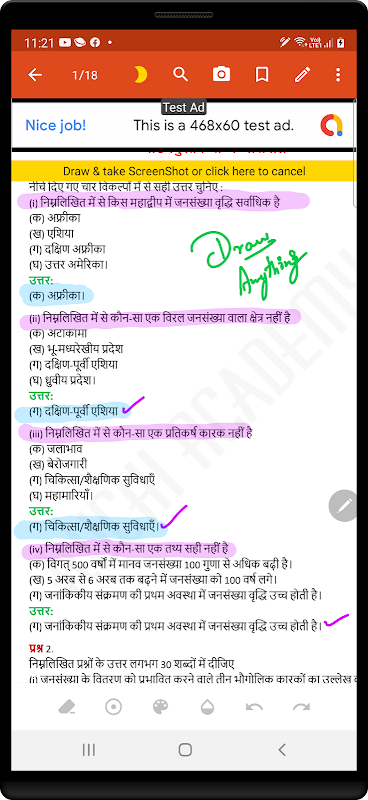 11:21
1/18
Test Ad
Nice job!
This is a 468x60 test ad.
Draw & take ScreenShot or click here to cancel
नीचे दिए गए चार विकल्पों में से सही उत्तर चुनिए :
(i) निम्नलिखित में से किस महाद्वीप में जनसंख्या वृद्धि सर्वाधिक है
(क) अफ्रीका
(ख) एशिया
(ग) दक्षिण अफ्रीका
(घ) उत्तर अमेरिका।
Draw
Anything
उत्तर:
(क) अफ्रीका।
(ii) निम्नलिखित में से कौन-सा एक विरल जनसंख्या वाला क्षेत्र नहीं है
(क) अटाकामा
(ख) भू-मध्यरेखीय प्रदेश
(ग) दक्षिण-पूर्वी एशिया
(घ) ध्रुवीय प्रदेश।
उत्तर:
(ग) दक्षिण-पूर्वी एशिया
(iii) निम्नलिखित में से कौन-सा एक प्रतिकर्ष कारक नहीं है
(क) जलाभाव
(ख) बेरोजगारी
(ग) चिकित्सा/शैक्षणिक सुविधाएँ
(घ) महामारियाँ।
उत्तर:
(ग) चिकित्सा/शैक्षणिक सुविधाएँ।
(iv) निम्नलिखित में से कौन-सा एक तथ्य सही नहीं है
(क) विगत् 500 वर्षों में मानव जनसंख्या 100 गुणा से अधिक बढ़ी है।
(ख) 5 अरब से 6 अरब तक बढ़ने में जनसंख्या को 100 वर्ष लगे।
(ग) जनांकिकीय संक्रमण की प्रथम अवस्था में जनसंख्या वृद्धि उच्च होती है।
उत्तर:
(ग) जनांकिकीय संक्रमण की प्रथम अवस्था में जनसंख्या वृद्धि उच्च होती है।
प्रश्न 2.
निम्नलिखित प्रश्नों के उत्तर लगभग 30 शब्दों में दीजिए
(i) जनसंख्या के वितरण को प्रभावित करने वाले तीन भौगोलिक कारकों का उल्लेख